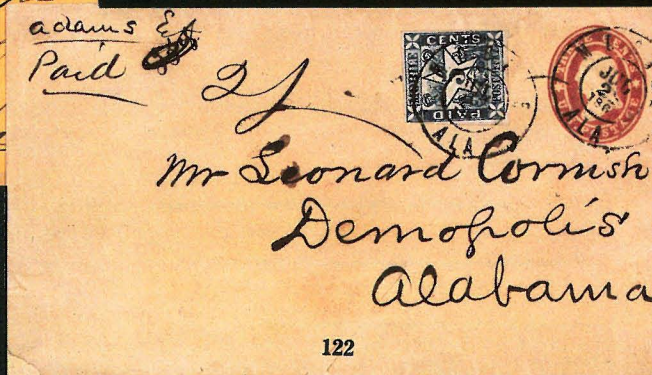 adams Ex
Paid
CENTS
PAID
ALA
ALA
Mr Leonard Cornish
Demopolis
Alabama
122